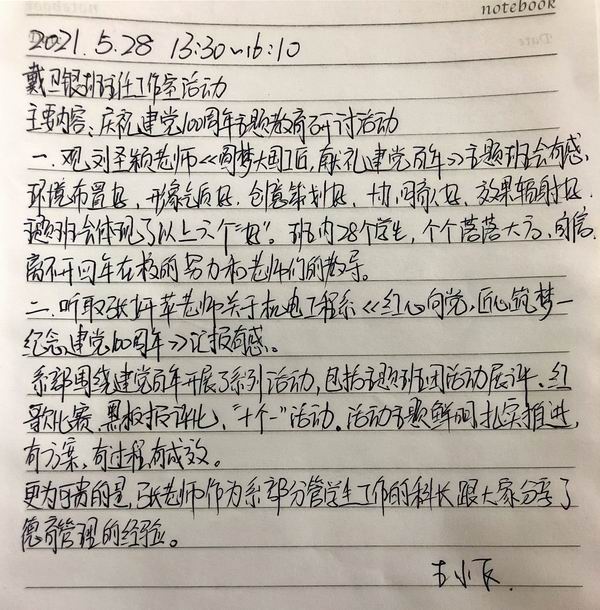 notebook
2021.5.28 13:30~16:10
戴卫银班主任工作室活动
主要内容:庆祝建党100周年主题教育研讨活动
一.观刘圣颖老师《圆梦大国工匠,献礼建党百年》主题班会有感.
环境布置好,形象气质好,创意策划好,协同融入好,效果辐射好.
主题班会体现了以上六个"好"。班内28个学生,个个落落大方、自信.
离不开四年在校的努力和老师们的教导。
二.听取张妍苹老师关于机电工程系《红心向党,匠心筑梦—
纪念建党100周年》汇报有感.
系部围绕建党百年开展了系列活动,包括主题班团活动展评、红
歌比赛、黑板报评比、"十个一"活动.活动主题鲜明,扎实推进,
有方案,有过程,有成效。
更为可贵的是,张老师作为系部分管学生工作的科长跟大家分享了
德育管理的经验。